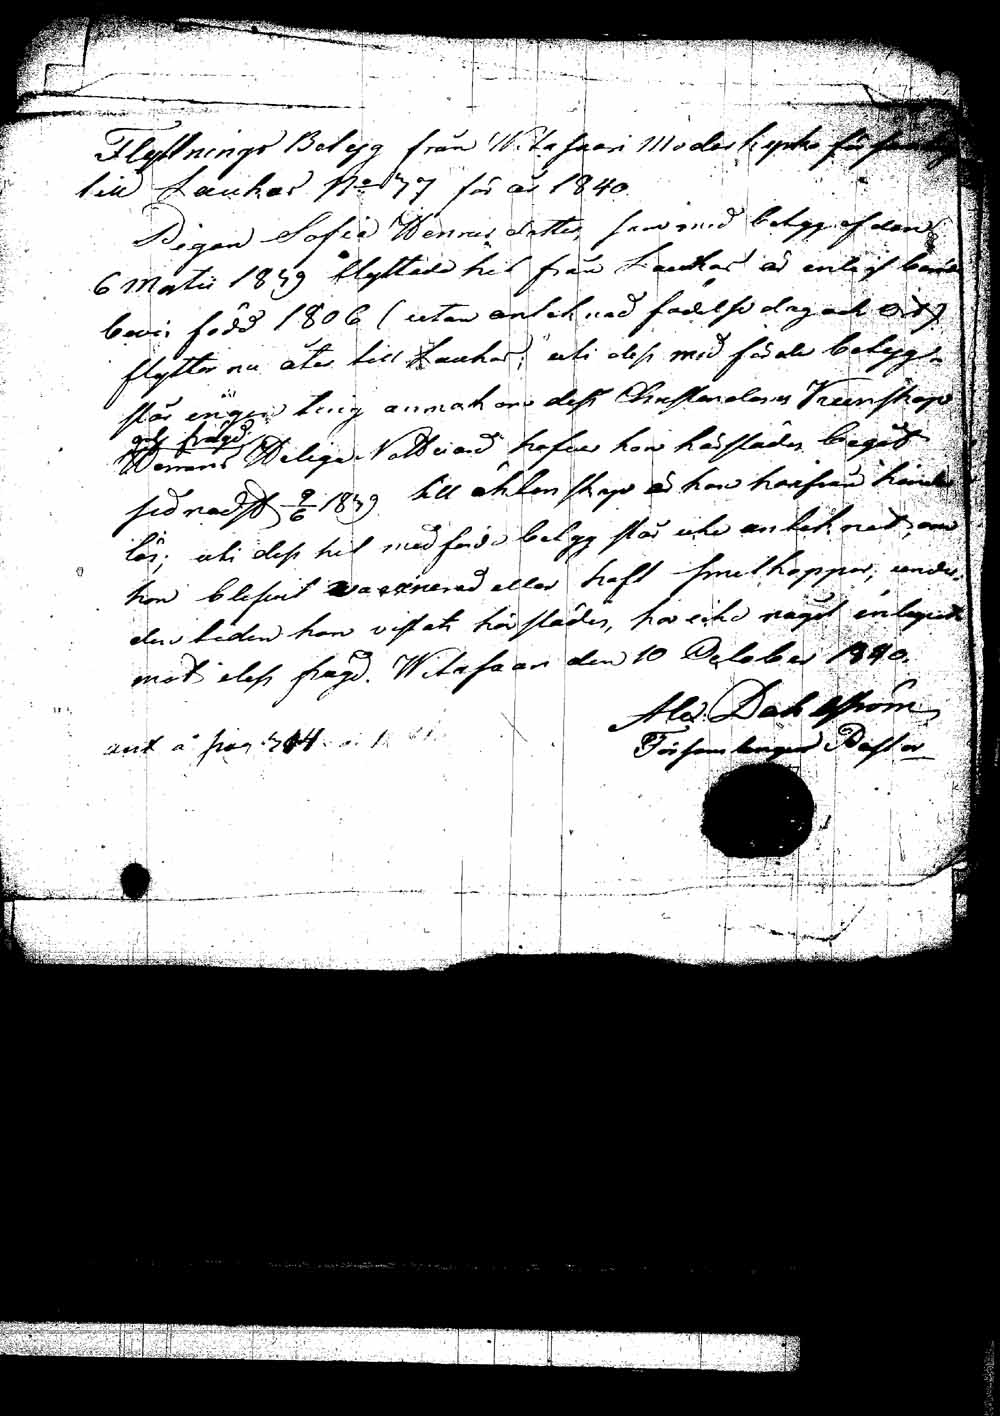 Flyttnings Betyg från Witasaari Moderkyrko församling
till Laukas No 77 för år 1840
Pigan Sofia Henricsdotter, som med betyg af den
6 Martii 1839 flyttade hit från Laukas är enligt
bevis född 1806 (utan antecknad födelse dag och Ort)
flyttar nu åter till Laukas; uti dess med förde betyg
står ingen ting anmärkt om dess Christendoms Kunskap
och frägd
Herrans Heliga Nattvard hafver hon härstädes begått
sednast 9/6 1839 till äktenskap är hon härifrån hinder
lös; uti dess hit medförde betyg står icke antecknadt, om
hon blifvit vaccinerad eller haft smittkoppor; under
den tiden hon vistats härstädes, har icke något inlupit
mot dess frägd. Witasaari den 10 October 1840.
Alex. Dahlström
Församlingens Pastor
ant å pag 314